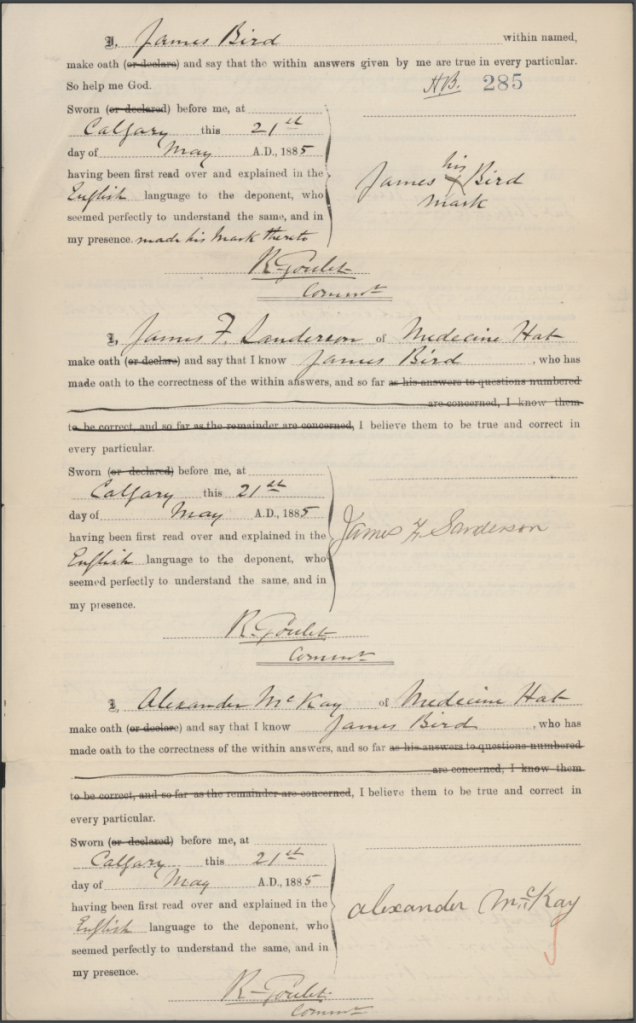 I, James Bird within named,
make oath (or declare) and say that the within answers given by me are true in every particular.
So help me God.
HB. 285
Sworn (or declared) before me, at
Calgary this 21st
day of May A.D., 1885
having been first read over and explained in the
English language to the deponent, who
seemed perfectly to understand the same, and in
my presence. made his Mark thereto
James his X Bird
mark
R. Goulet
Commr
I, James F. Sanderson of Medecine Hat
make oath (or declare) and say that I know James Bird, who has
made oath to the correctness of the within answers, and so far as his answers to questions numbered
are concerned, I know them
to be correct, and so far as the remainder are concerned, I believe them to be true and correct in
every particular.
Sworn (or declared) before me, at
Calgary this 21st
day of May A.D., 1885
having been first read over and explained in the
English language to the deponent, who
seemed perfectly to understand the same, and in
my presence.
James F. Sanderson
R. Goulet
Commr
I, Alexander McKay of Medecine Hat
make oath (or declare) and say that I know James Bird, who has
made oath to the correctness of the within answers, and so far as his answers to questions numbered
are concerned, I know them
to be correct, and so far as the remainder are concerned, I believe them to be true and correct in
every particular.
Sworn (or declared) before me, at
Calgary this 21st
day of May A.D., 1885
having been first read over and explained in the
English language to the deponent, who
seemed perfectly to understand the same, and in
my presence.
Alexander McKay
R. Goulet
Commr